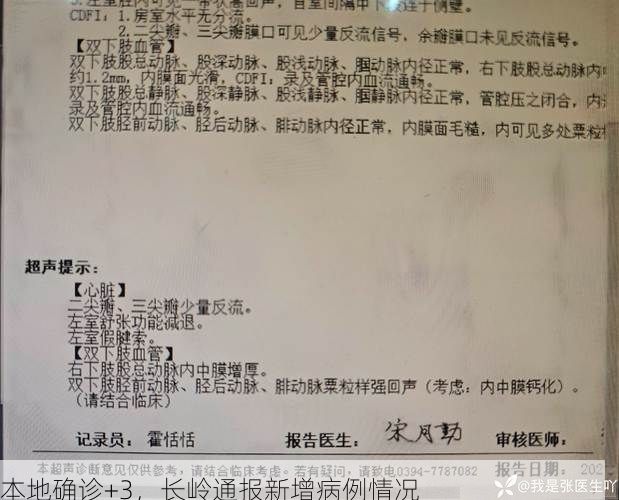 3.左室腔内可见一带状基回声，自室间隔中下段连于侧壁。
CDFI：1.房室水平无分流。
2.二尖瓣、三尖瓣膜口可见少量反流信号，余瓣膜口未见反流信号。
【双下肢血管】
双下肢股总动脉、股深动脉、股浅动脉、腘动脉内径正常，右下肢股总动脉内
约1.2mm，内膜面光滑，CDFI：录及管腔内血流通畅。
双下肢股总静脉、股深静脉、股浅静脉、腘静脉内径正常，管腔压之闭合，内
录及管腔内血流通畅。
双下肢胫前动脉、胫后动脉、腓动脉内径正常，内膜面毛糙，内可见多处粟粒
超声提示：
【心脏】
二尖瓣、三尖瓣少量反流。
左室舒张功能减退。
左室假腱索。
【双下肢血管】
右下肢股总动脉内中膜增厚。
双下肢胫前动脉、胫后动脉、腓动脉粟粒样强回声（考虑：内中膜钙化）。
（请结合临床）
记录员：霍恬恬 报告医生：宋月勤 审核医师：
本超声诊断意见仅供参考。请结合临床考虑。若有疑问，请致电0394-7787082 报告日期：202
@我是张医生吖
本地确诊+3，长岭通报新增病例情况